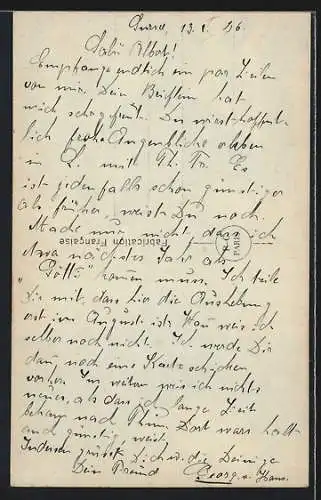 13. 1. 26.
Salü Albert!
Empfange endlich ein paar Zeilen
von mir. Dein Brieflein hat
mich sehr gefreut. Du wirst hoffent-
lich frohe Augenblicke erleben
in Z. mit Th. Fr. Es
ist jedenfalls schon günstiger
als früher, weist Du noch.
Mache mir nicht dass ich
etwa nächstes Jahr als
kommen muss. Ich teile
Dir mit, dass hier die Aushebung
erst im August ist. Wann weis ich
selber noch nicht. Ich werde Dir
dann noch eine Karte schicken
vorher. Im weitern weis ich nichts
neues, als dass ich lange Zeit
bekam nach Dort wars halt
auch günstig, weist.
Indessen grüsst Dich wie die Deinige
Dein Freund Georg u. Hans.
Fabrication Française
PARIS